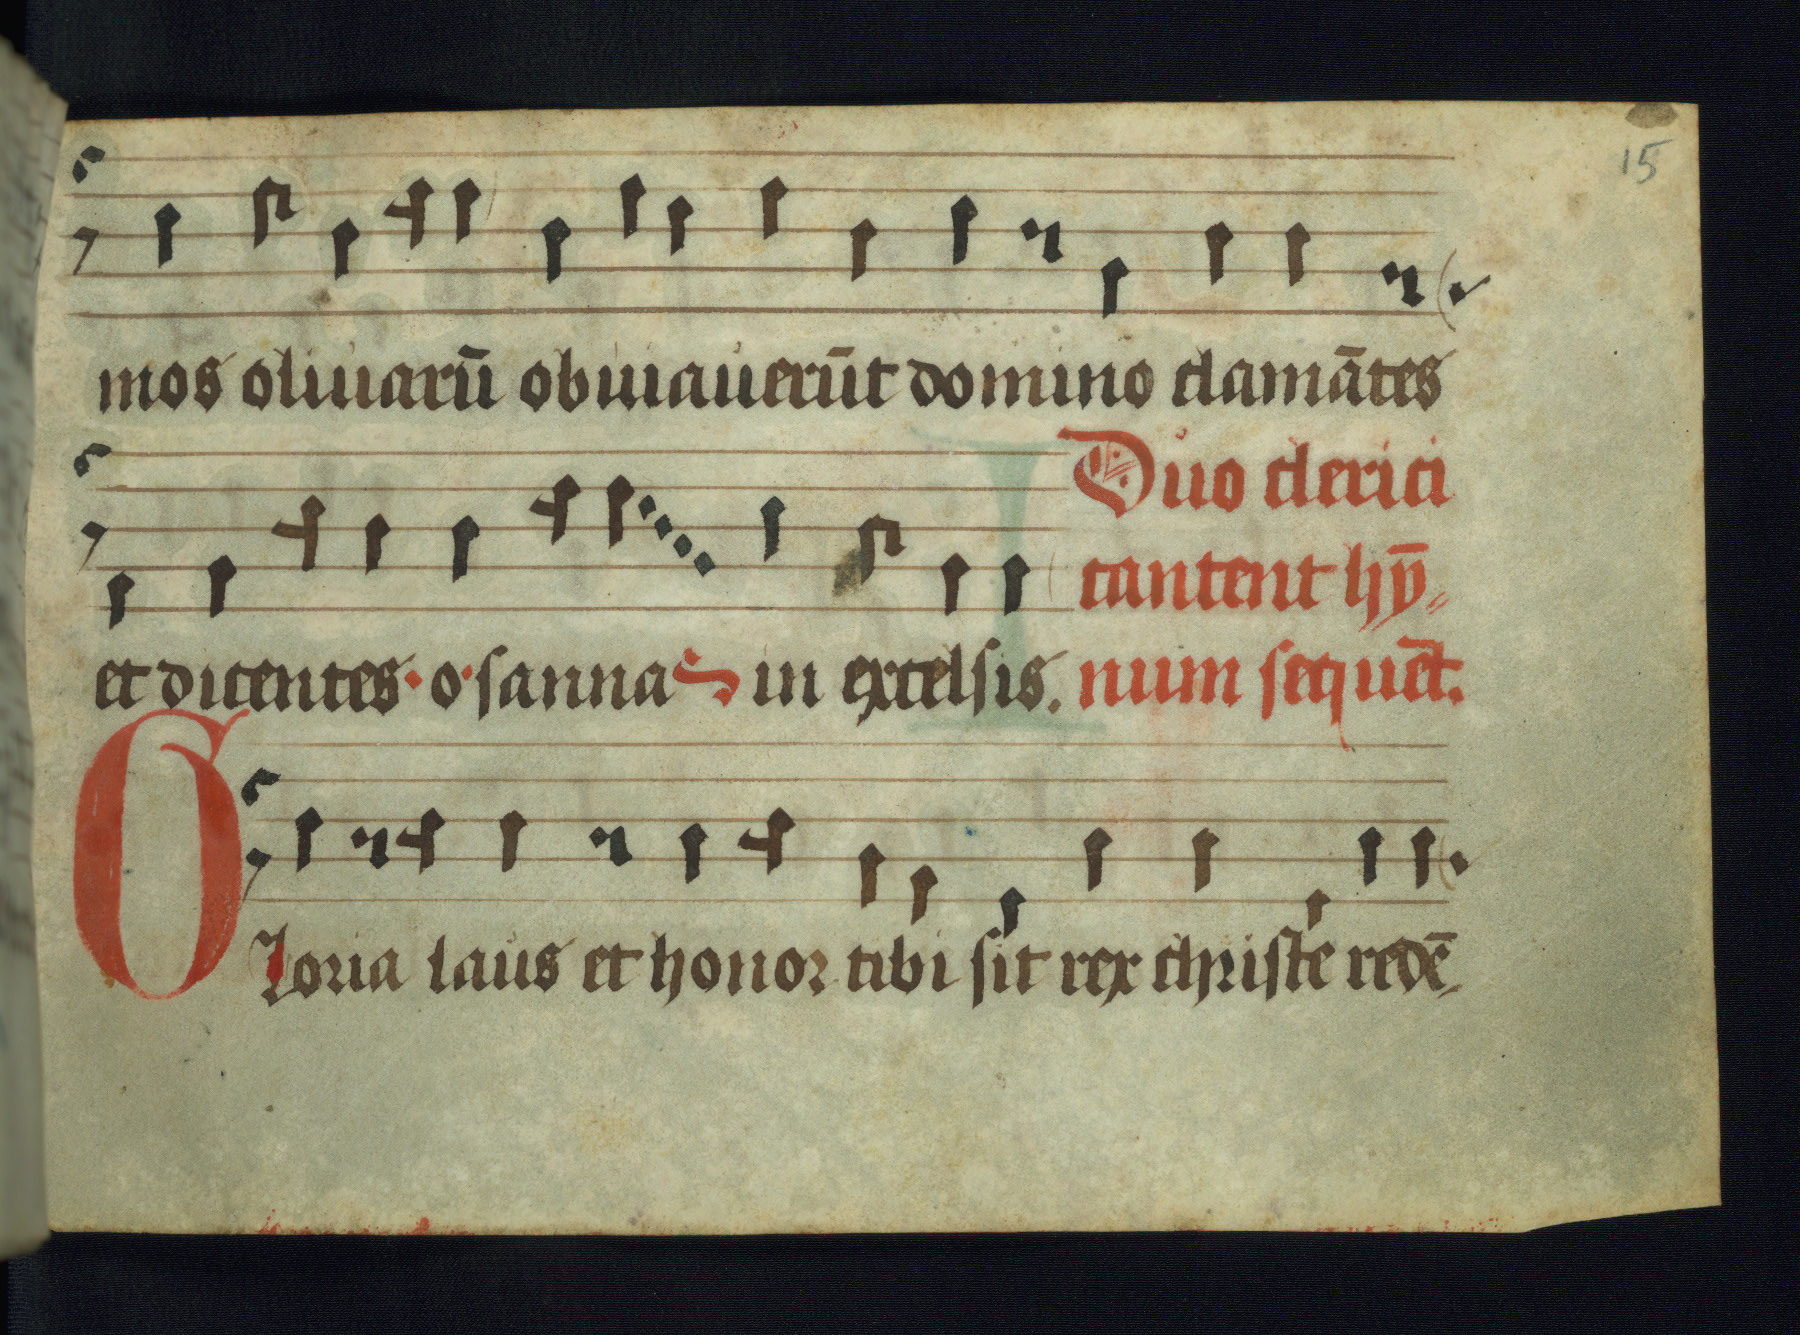 15
mos oliuarū obuiauerūt domino clamātes
Duo clerici
cantent hȳ⸗
et dicentes· o·sanna in excelsis. num sequēt.
Gloria laus et honor tibi sit rex christe redē⸗